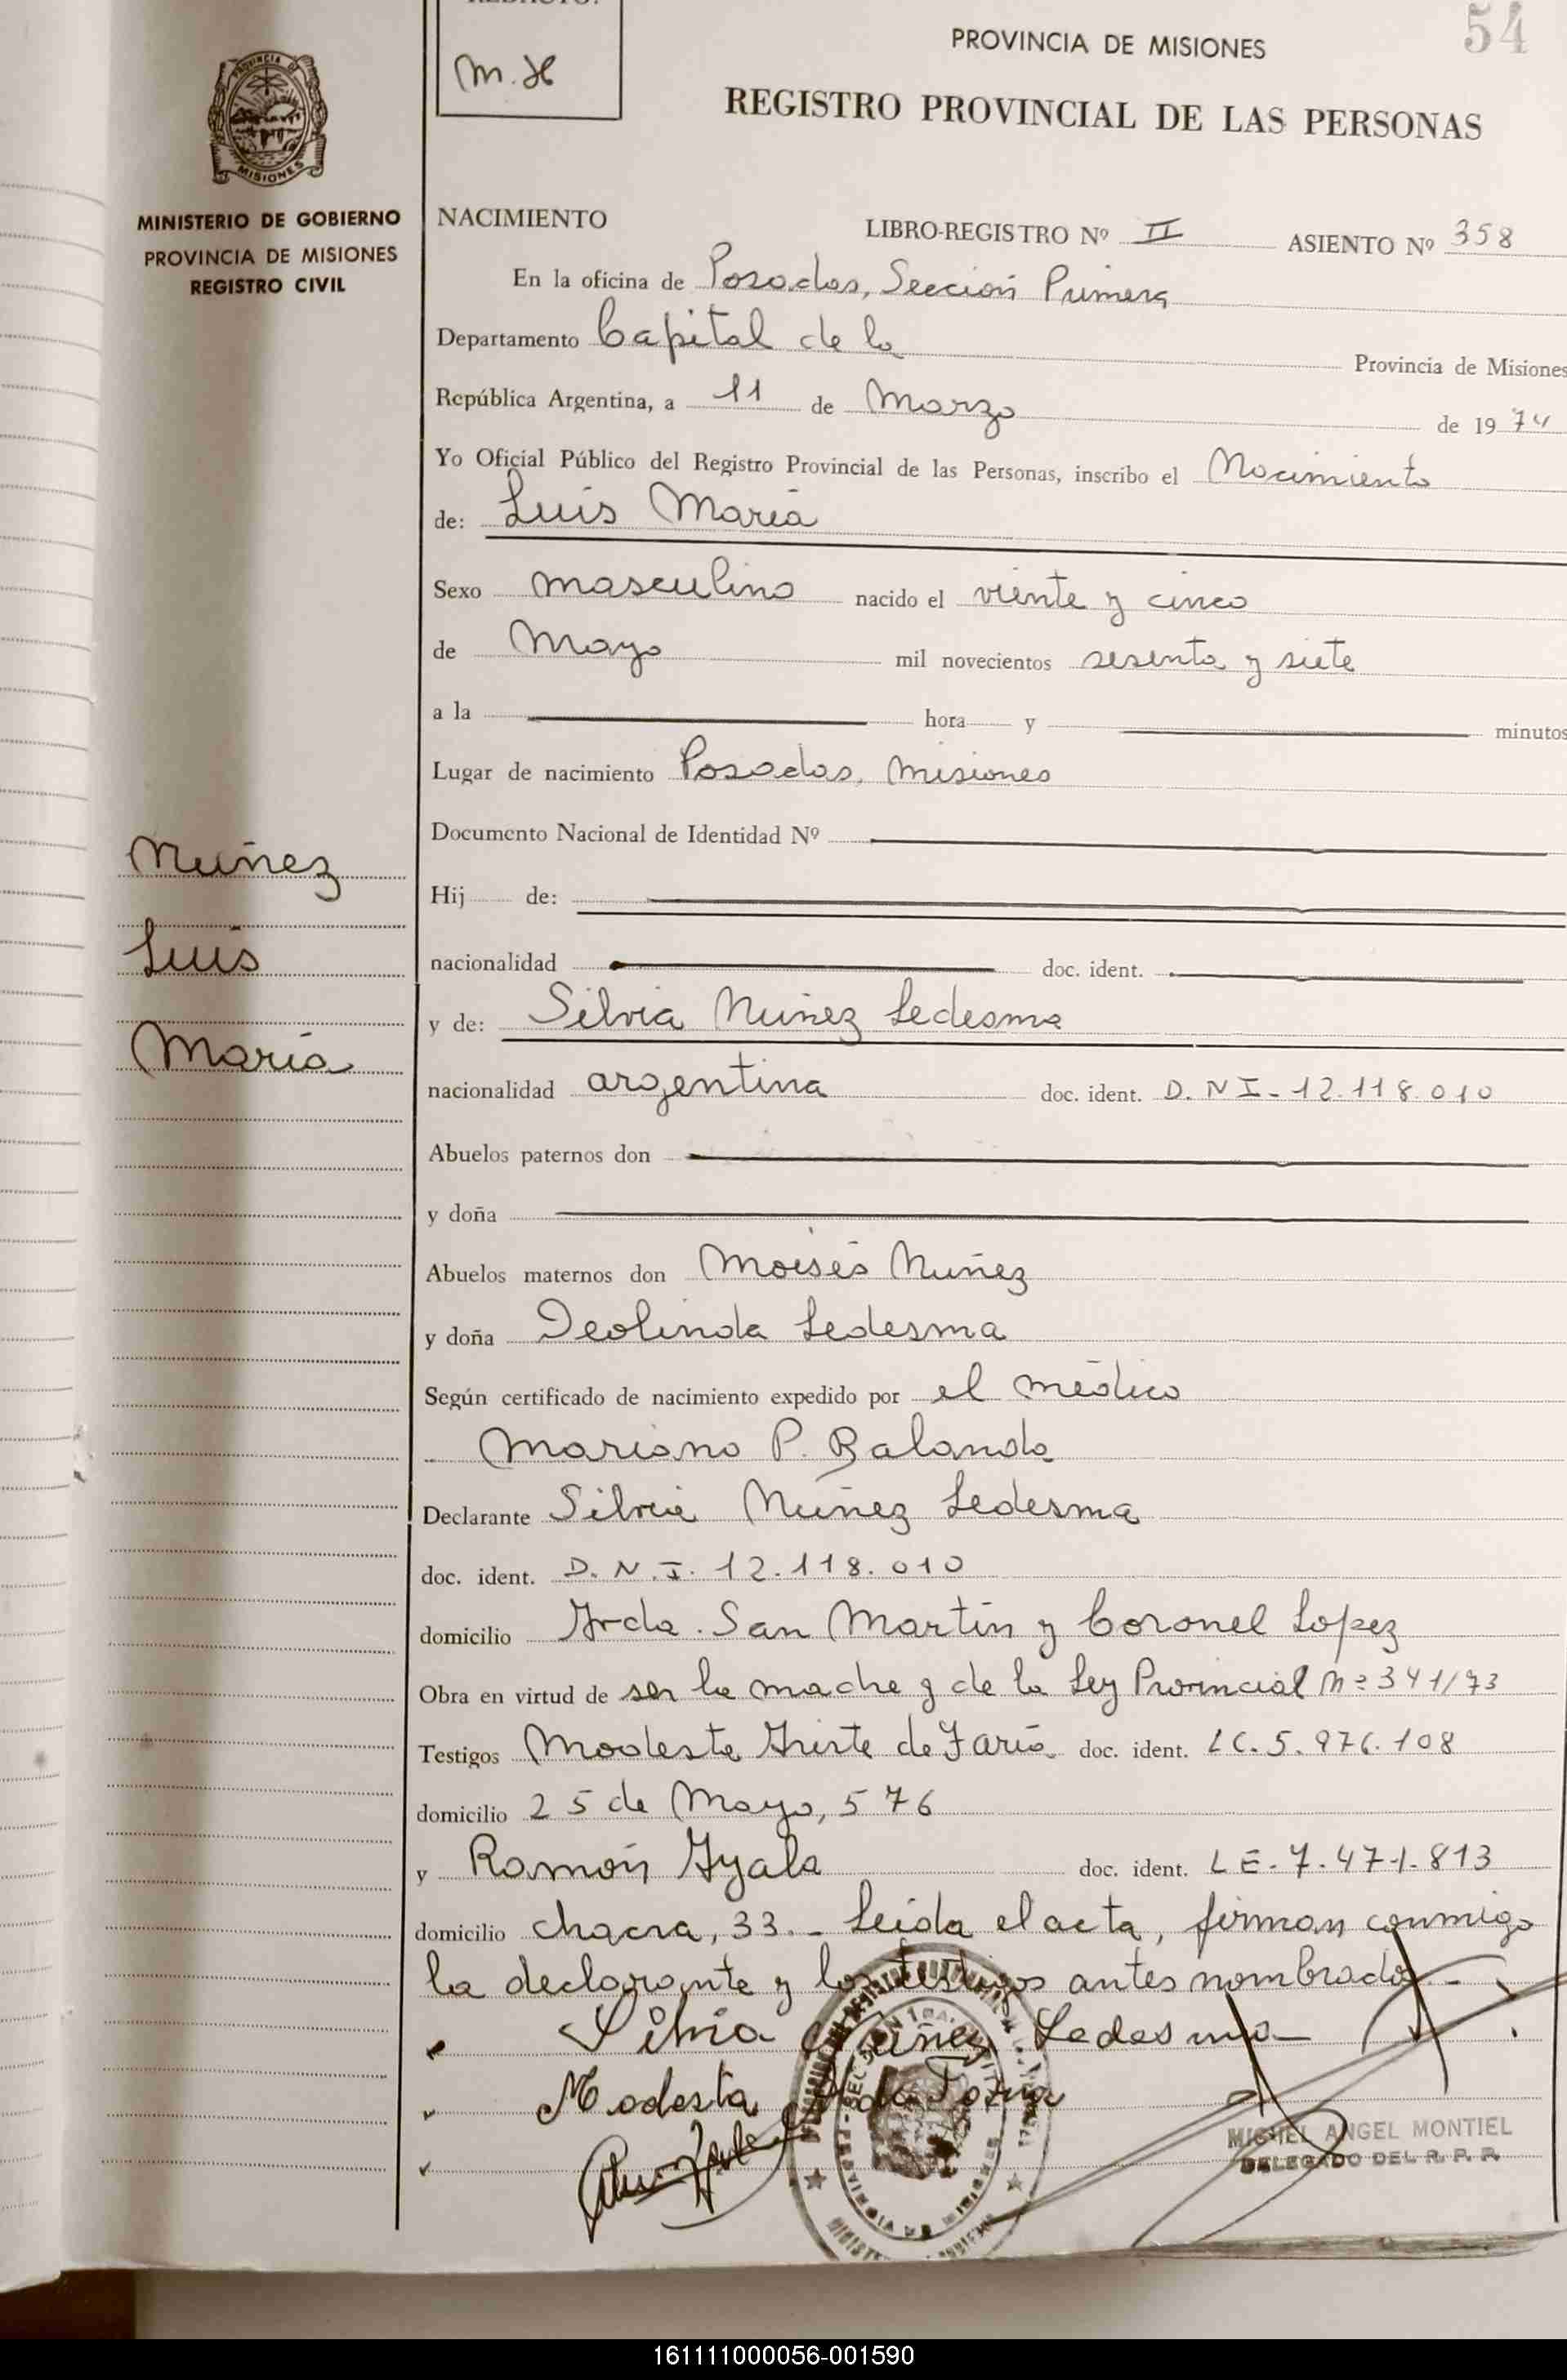 REDACTÓ:
M.H
PROVINCIA DE MISIONES
54
REGISTRO PROVINCIAL DE LAS PERSONAS
PROVINCIA DE
MISIONES
MINISTERIO DE GOBIERNO
PROVINCIA DE MISIONES
REGISTRO CIVIL
NACIMIENTO LIBRO-REGISTRO Nº II ASIENTO Nº 358
En la oficina de Posadas, Sección Primera
Departamento Capital de la Provincia de Misiones
República Argentina, a 11 de Marzo de 1974
Yo Oficial Público del Registro Provincial de las Personas, inscribo el Nacimiento
de: Luis María
Sexo masculino nacido el veinte y cinco
de Mayo mil novecientos sesenta y siete
a la hora y minutos
Lugar de nacimiento Posadas, Misiones
Documento Nacional de Identidad Nº
Nuñez
Hij de:
Luis
nacionalidad doc. ident.
y de: Silvia Nuñez Ledesma
María
nacionalidad argentina doc. ident. D.N.I-12.118.010
Abuelos paternos don
y doña
Abuelos maternos don Moisés Nuñez
y doña Deolinda Ledesma
Según certificado de nacimiento expedido por el médico
Mariano P. Balanda
Declarante Silvia Nuñez Ledesma
doc. ident. D.N.I. 12.118.010
domicilio Avda. San Martín y Coronel Lopez
Obra en virtud de ser la madre y de la Ley Provincial Nº 341/73
Testigos Modesta de Faria doc. ident. LC.5.976.108
domicilio 25 de Mayo, 576
y Ramón Ayala doc. ident. LE-7.471.813
domicilio chacra, 33.- Leída el acta, firman conmigo
la declarante y los testigos antes nombrados.-
Silvia Nuñez Ledesma
Modesta de Faria
MIGUEL ANGEL MONTIEL
DELEGADO DEL R. P. P.
161111000056-001590